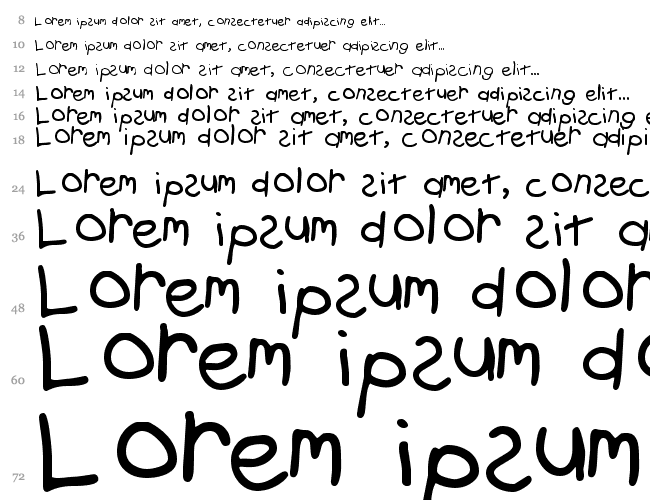 8 Lorem ipsum dolor sit amet, consectetuer adipiscing elit...
10 Lorem ipsum dolor sit amet, consectetuer adipiscing elit...
12 Lorem ipsum dolor sit amet, consectetuer adipiscing elit...
14 Lorem ipsum dolor sit amet, consectetuer adipiscing elit...
16 Lorem ipsum dolor sit amet, consectetuer adipiscing e
18 Lorem ipsum dolor sit amet, consectetuer adipi
24 Lorem ipsum dolor sit amet, consec
36 Lorem ipsum dolor sit a
48 Lorem ipsum dolor
60 Lorem ipsum do
72 Lorem ipsum